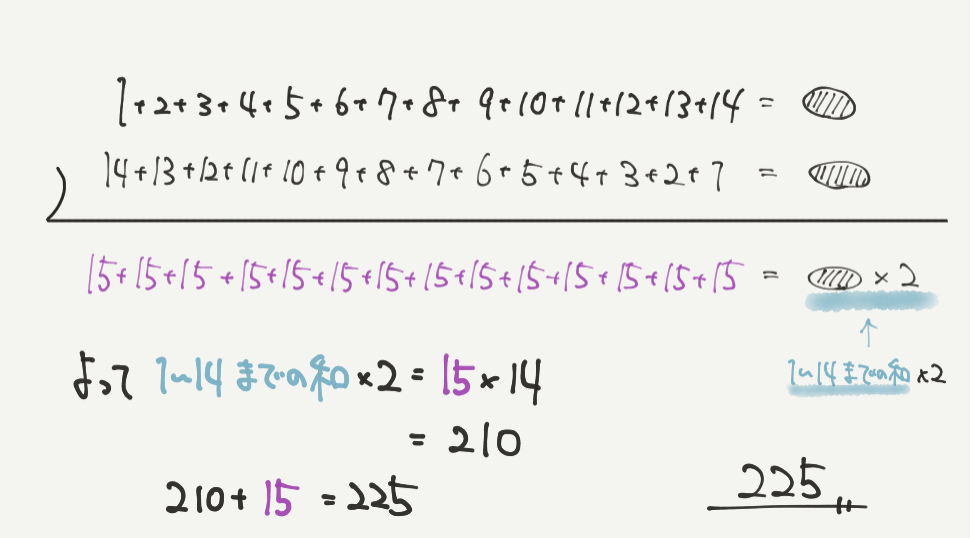 1+2+3+4+5+6+7+8+9+10+11+12+13+14=
14+13+12+11+10+9+8+7+6+5+4+3+2+1=
15+15+15+15+15+15+15+15+15+15+15+15+15+15=×2
よって 1~14までの和×2=15×14
1~14までの和×2
=210
210+15=225
225